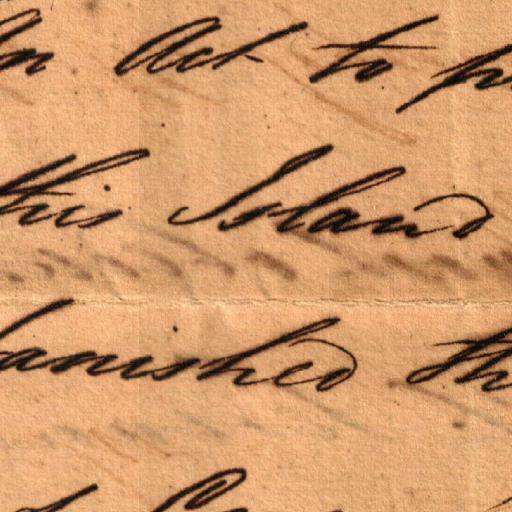 An Act to p
this Island
banished th